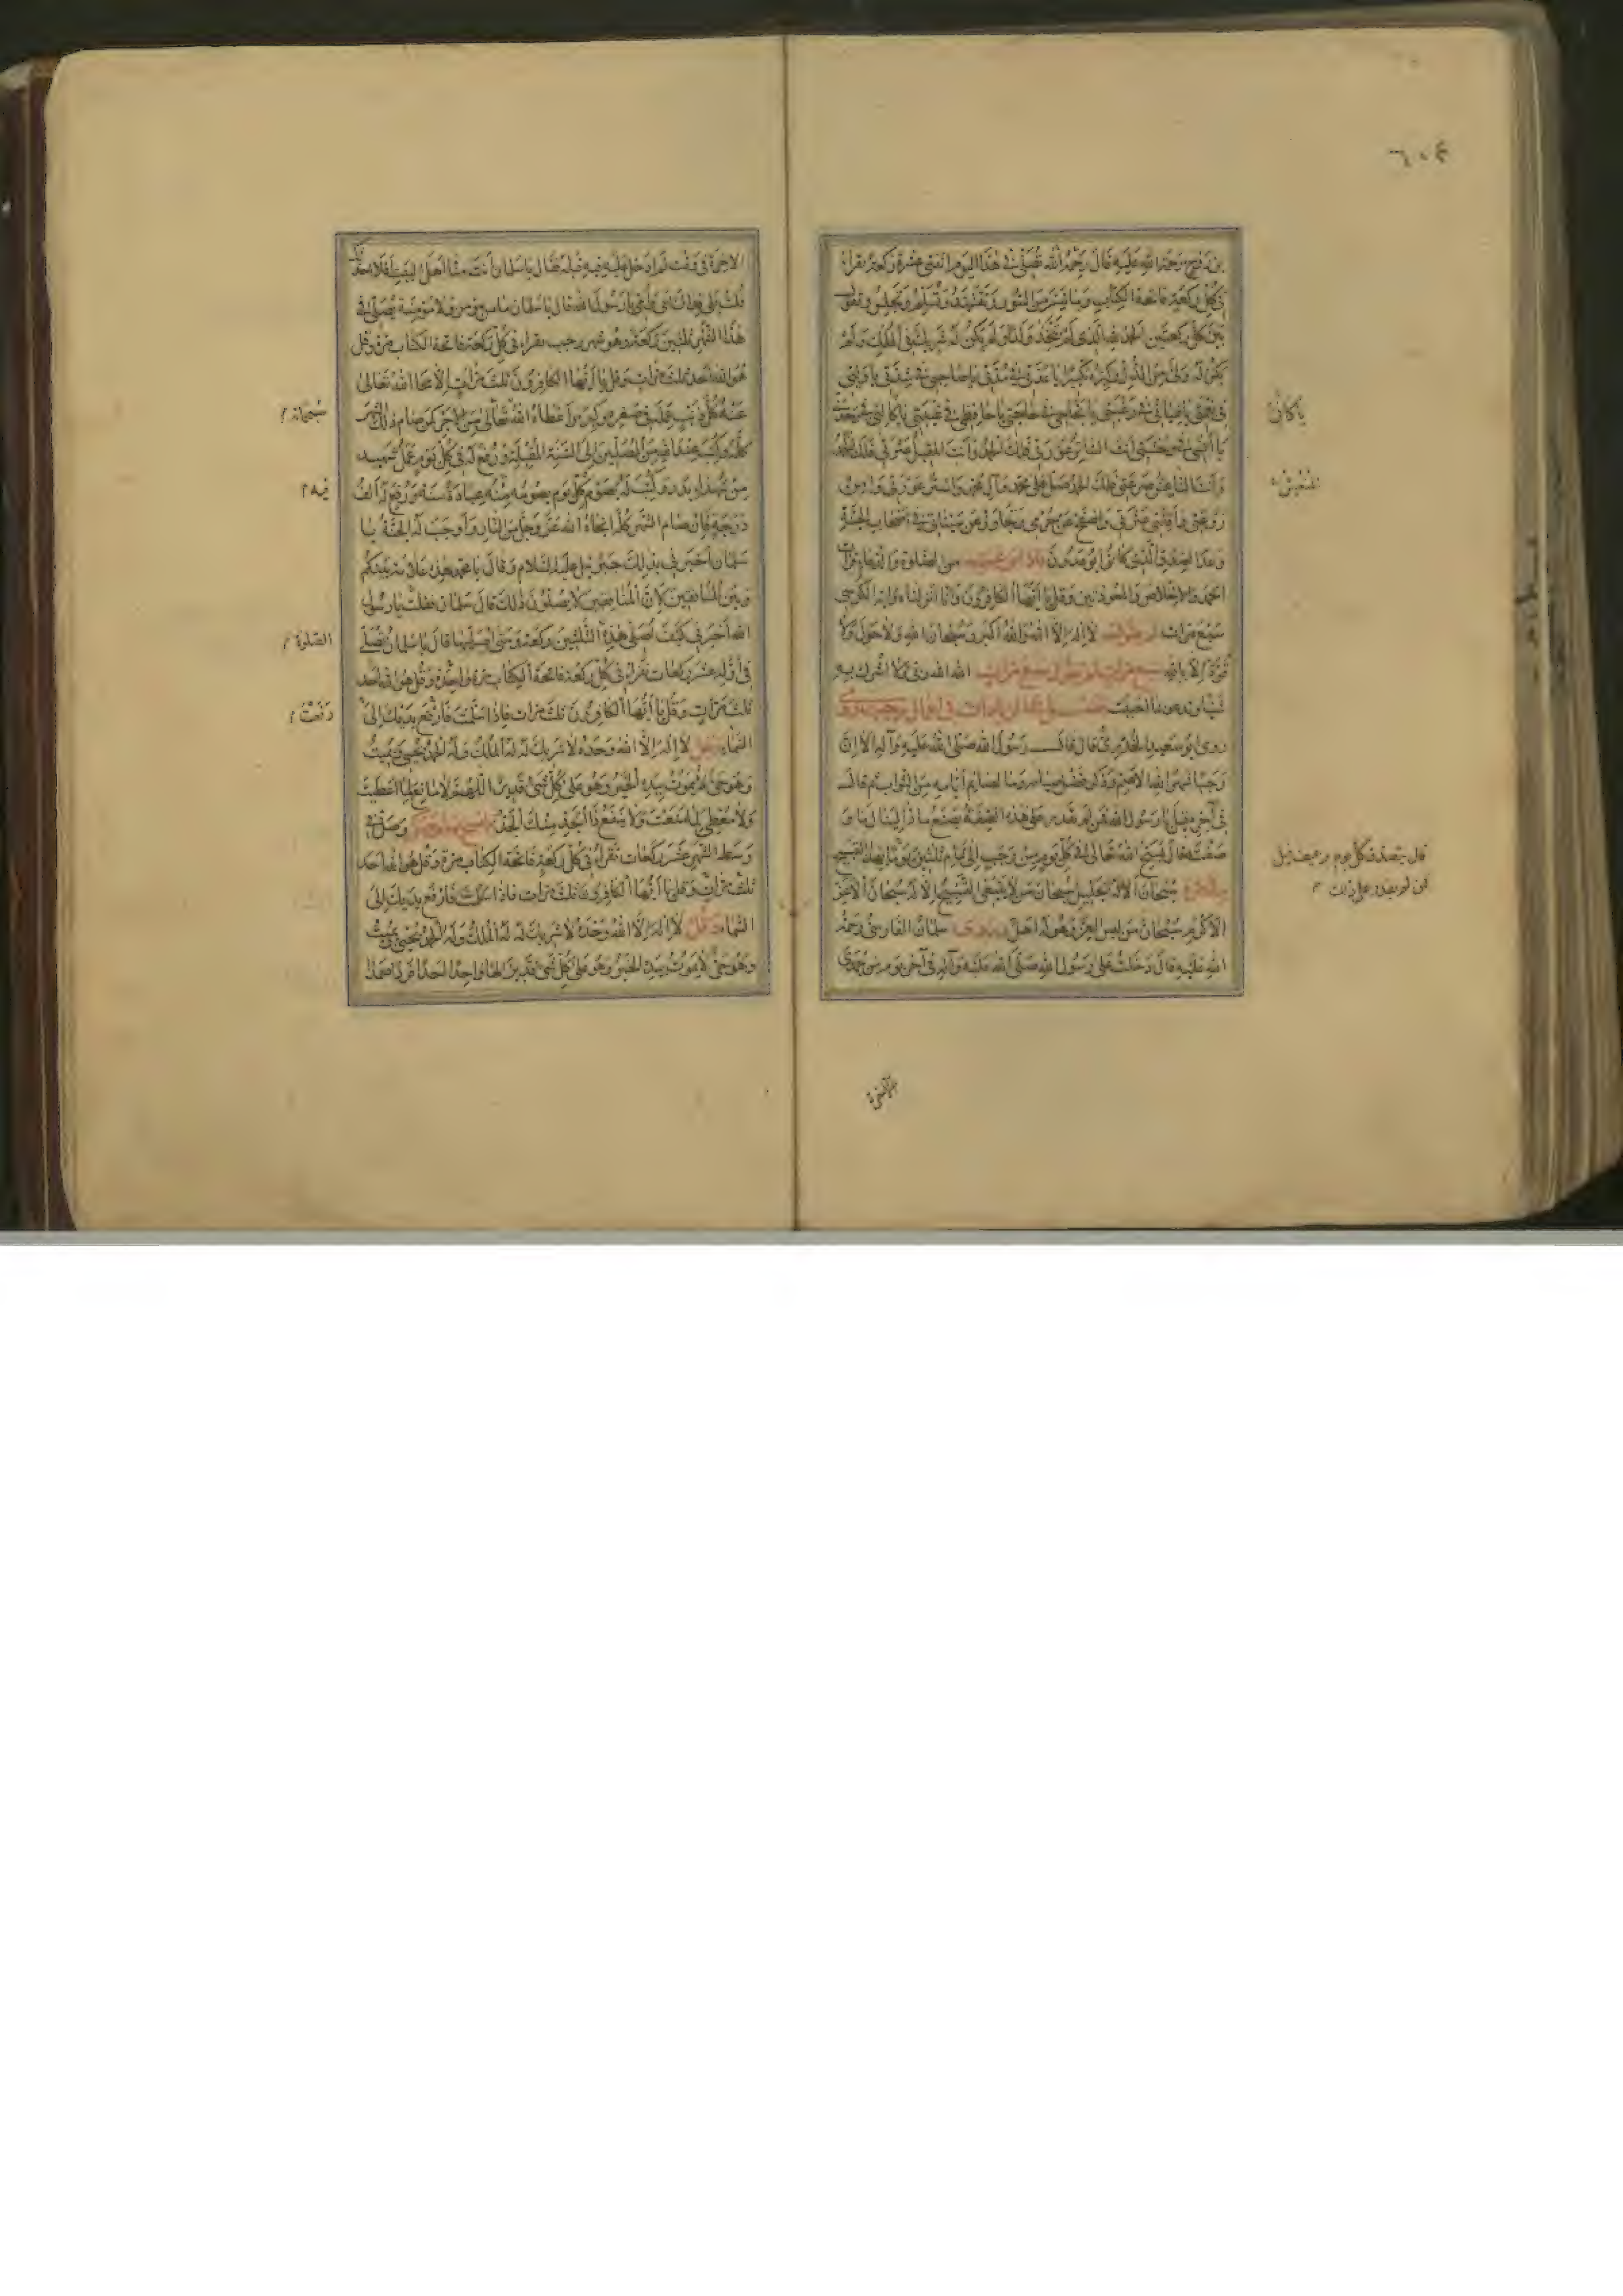 ٦٠٤
بن روح رحمة الله عليه قال رحمه الله تصلى فى هذا اليوم اثنتى عشرة ركعة تقراء
فى كل ركعة فاتحة الكتاب وما تيسر من السور وتتشهد وتسلم وتجلس وتقول
بين كل ركعتين الحمد لله الذى لم يتخذ ولدا ولم يكن له شريك فى الملك ولم
يكن له ولى من الذل وكبره تكبيرا يا عدتى فى مدتى يا صاحبى فى شدتى يا وليى
فى نعمتى يا غياثى فى رغبتى يا نجاحى فى حاجتى يا حافظى فى غيبتى يا كالئى فى وحدتى
يا انسى فى وحشتى انت الساتر عورتى فلك الحمد وانت المقيل عثرتى فلك الحمد
وانت المنعش صرعتى فلك الحمد صل على محمد وآل محمد واستر عورتى وآمن
روعتى واقلنى عثرتى واصفح عن جرمى وتجاوز عن سيئاتى فى اصحاب الجنة
وعد الصدق الذى كانوا يوعدون فاذا فرغت من الصلوة والدعاء قرات
الحمد والاخلاص والمعوذتين وقل يا ايها الكافرون وانا انزلناه واية الكرسى
سبع مرات ثم تقول لا اله الا الله والله اكبر وسبحان الله ولا حول ولا
قوة الا بالله سبع مرات ثم تقول سبع مرات الله الله ربى لا اشرك به
شيئا وتدعو بما احببت
روى ابو سعيد الخدرى قال قال رسول الله صلى الله عليه وآله الا ان
رجب شهر الله الاصم وذكر فضل صيامه وما لصائم ايامه من الثواب ثم قال
فى آخره قيل يا رسول الله فمن لم يقدر على هذه الصفة يصنع ماذا لينال ما
وصفت قال يسبح الله تعالى فى كل يوم من رجب الى تمام ثلثين يوما بهذا التسبيح
سبحان الاله الجليل سبحان من لا ينبغى التسبيح الا له سبحان الاعز
الاكرم سبحان من لبس العز وهو له اهل وروى سلمان الفارسى رحمة
الله عليه قال دخلت على رسول الله صلى الله عليه وآله فى آخر يوم من جمدى
يا كالئى
المنعش
قال يتصدق كل يوم برغيف قيل
فمن لم يقدر على ذلك
الآخرة
الاخرة فى وقت لم ادخل عليه فيه قبله فقال يا سلمان انت منا اهل البيت افلا احدثك
قلت بلى فداك ابى وامى يا رسول الله قال يا سلمان ما من مؤمن ولا مؤمنة يصلى فى
هذا الشهر ثلثين ركعة وهو شهر رجب يقراء فى كل ركعة فاتحة الكتاب مرة وقل
هو الله احد ثلث مرات وقل يا ايها الكافرون ثلث مرات الا محا الله تعالى
عنه كل ذنب عمله فى صغره وكبره واعطاه الله تعالى من الاجر كمن صام ذلك الشهر
كله وكتب عند الله من المصلين الى السنة المقبلة ورفع له فى كل يوم عمل شهيد
من شهداء بدر وكتب له بصوم كل يوم يصومه منه عبادة سنة ورفع له الف
درجة فان صام الشهر كله انجاه الله عز وجل من النار واوجب له الجنة يا
سلمان اخبرنى بذلك جبرئيل عليه السلام وقال يا محمد هذه علامة بينكم
وبين المنافقين لان المنافقين لا يصلون ذلك قال سلمان فقلت يا رسول
الله اخبرنى كيف اصلى هذه الثلثين ركعة ومتى اصليها قال يا سلمان تصلى
فى اوله عشر ركعات تقراء فى كل ركعة فاتحة الكتاب مرة واحدة وقل هو الله احد
ثلث مرات وقل يا ايها الكافرون ثلث مرات فاذا سلمت فارفع يديك الى
السماء وقل لا اله الا الله وحده لا شريك له له الملك وله الحمد يحيى ويميت
وهو حى لا يموت بيده الخير وهو على كل شئ قدير اللهم لا مانع لما اعطيت
ولا معطى لما منعت ولا ينفع ذا الجد منك الجد ثم امسح بهما وجهك وصل فى
وسط الشهر عشر ركعات تقراء فى كل ركعة فاتحة الكتاب مرة وقل هو الله احد
ثلث مرات وقل يا ايها الكافرون ثلث مرات فاذا سلمت فارفع يديك الى
السماء وقل لا اله الا الله وحده لا شريك له له الملك وله الحمد يحيى ويميت
وهو حى لا يموت بيده الخير وهو على كل شئ قدير الها واحدا احدا فردا صمدا
سبحانه
فيه
الصلوة
رفعت